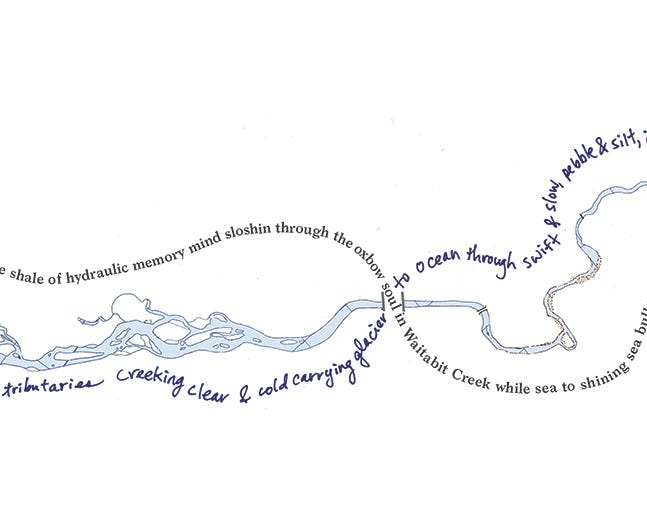 shale of hydraulic memory mind sloshin through the oxbow soul in Waitabit Creek while sea to shining sea
tributaries creeking clear & cold carrying glacier to ocean through swift & slow, pebble & silt,